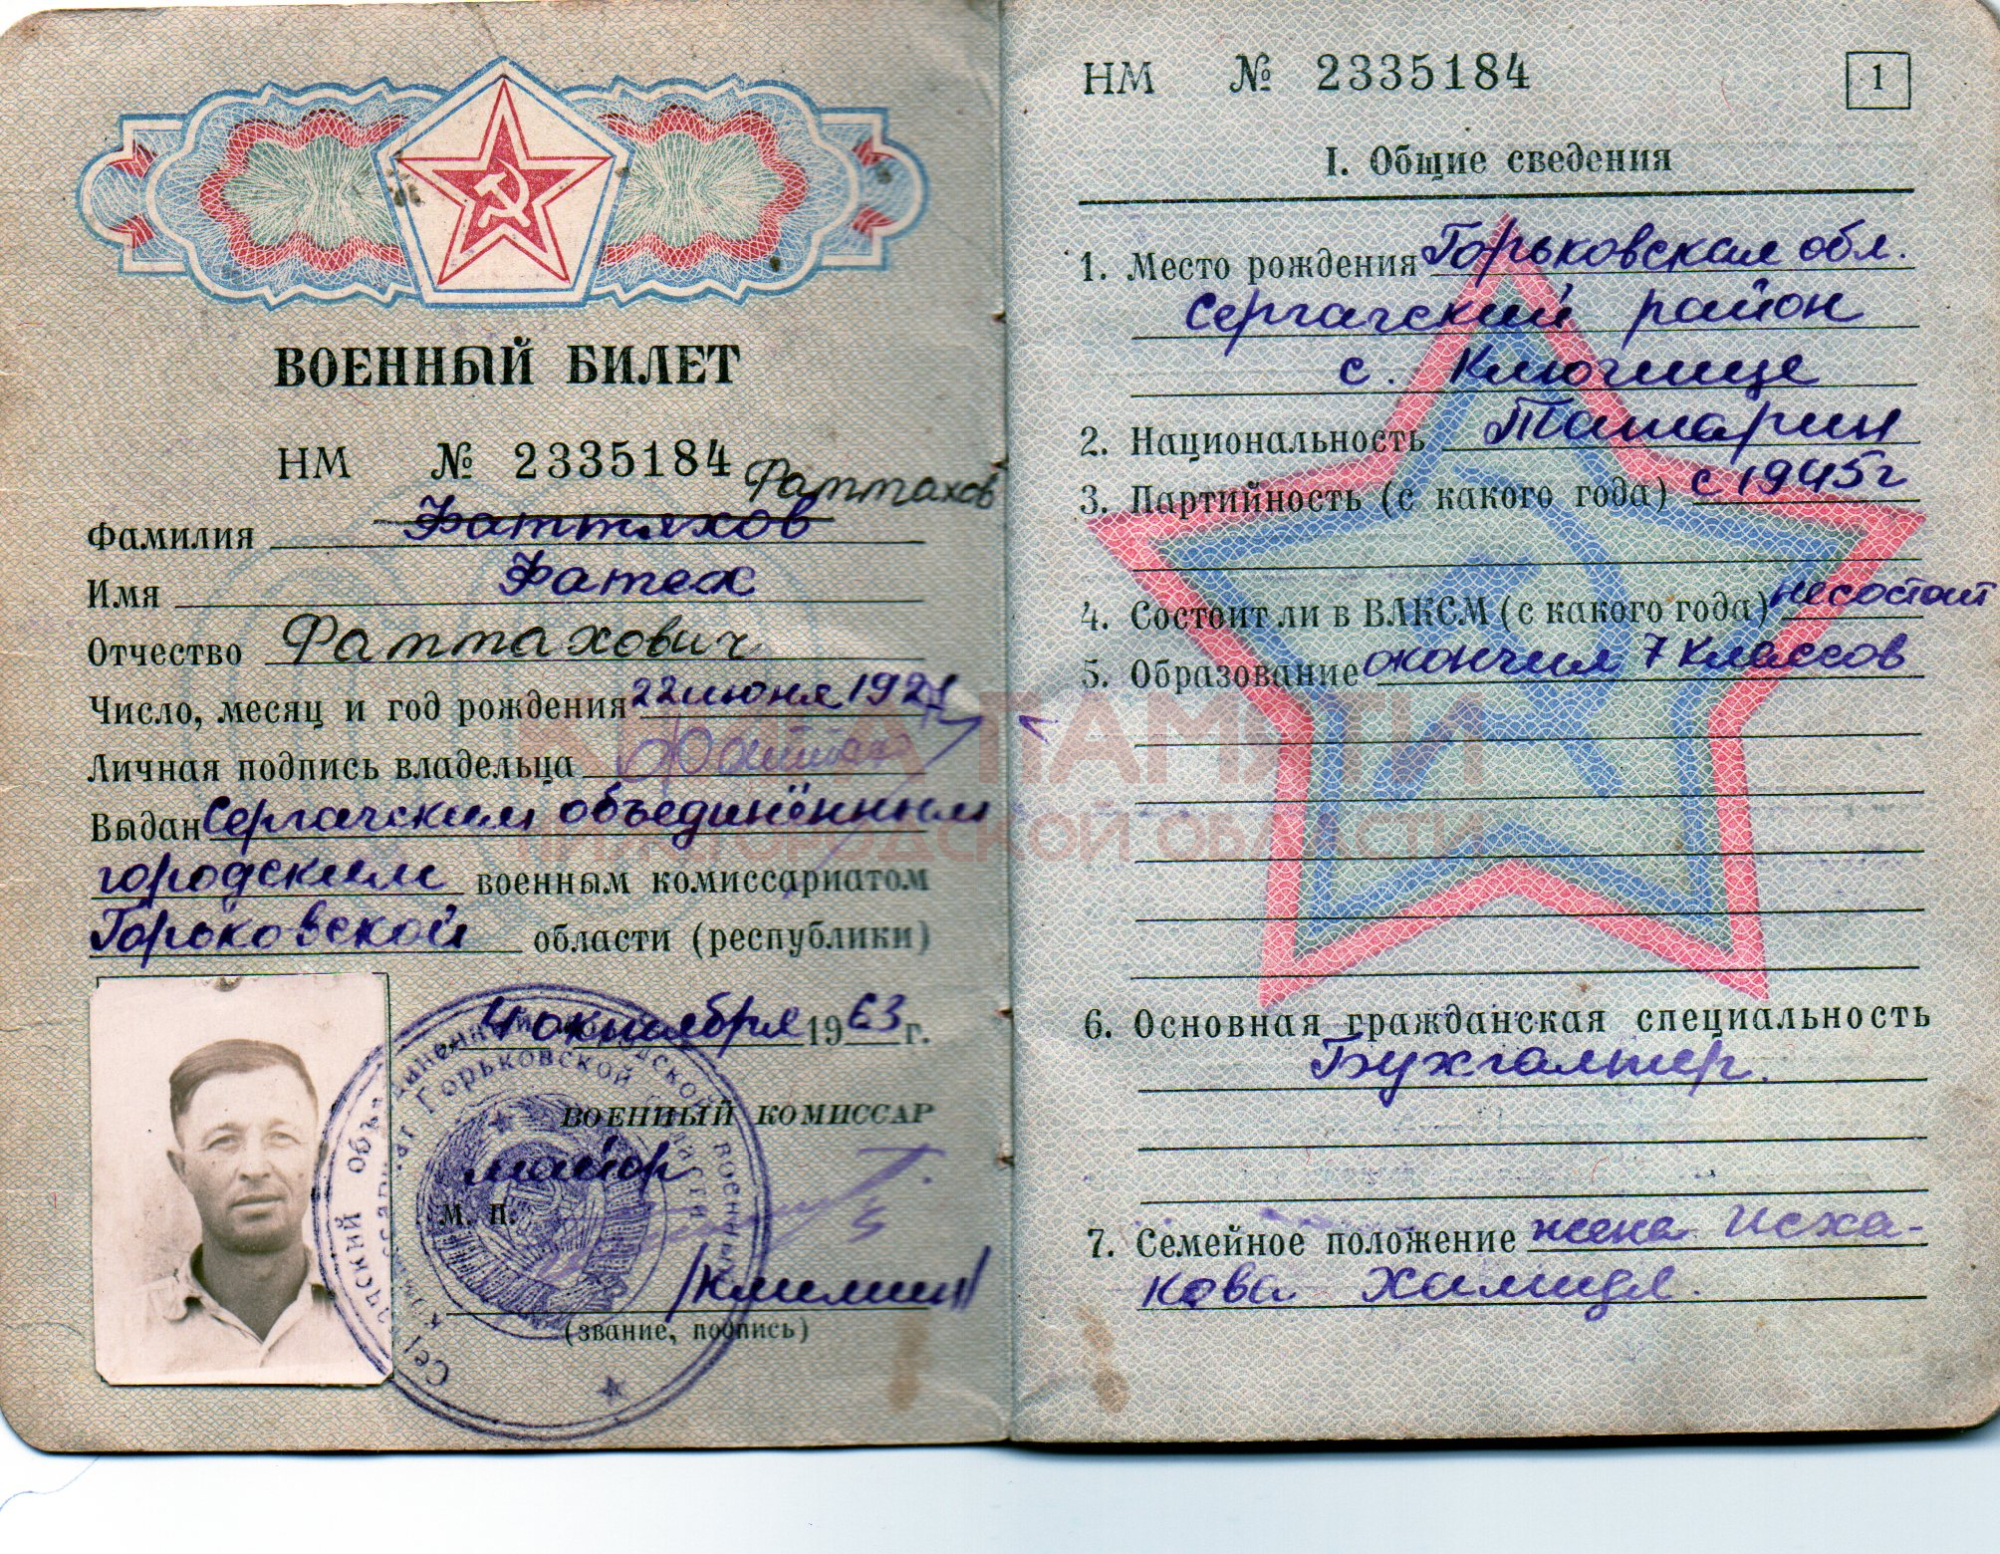 ВОЕННЫЙ БИЛЕТ
НМ № 2335184
Фаттахов
Фамилия Фаттяхов
Имя Фатех
Отчество Фаттахович
Число, месяц и год рождения 22 июня 1921
Личная подпись владельца
Выдан Сергачским объединённым
городским военным комиссариатом
Горьковской области (республики)
4 октября 1963 г.
ВОЕННЫЙ КОМИССАР
майор
М. П.
/Климин/
(звание, подпись)
НМ № 2335184
1
I. Общие сведения
1. Место рождения Горьковская обл.
Сергачский район
с. Ключище
2. Национальность Татарин
3. Партийность (с какого года) с 1945г
4. Состоит ли в ВЛКСМ (с какого года) не состоит
5. Образование окончил 7 классов
6. Основная гражданская специальность
Бухгалтер.
7. Семейное положение жена Исха-
кова Халидя.
КНИГА ПАМЯТИ
НИЖЕГОРОДСКОЙ ОБЛАСТИ